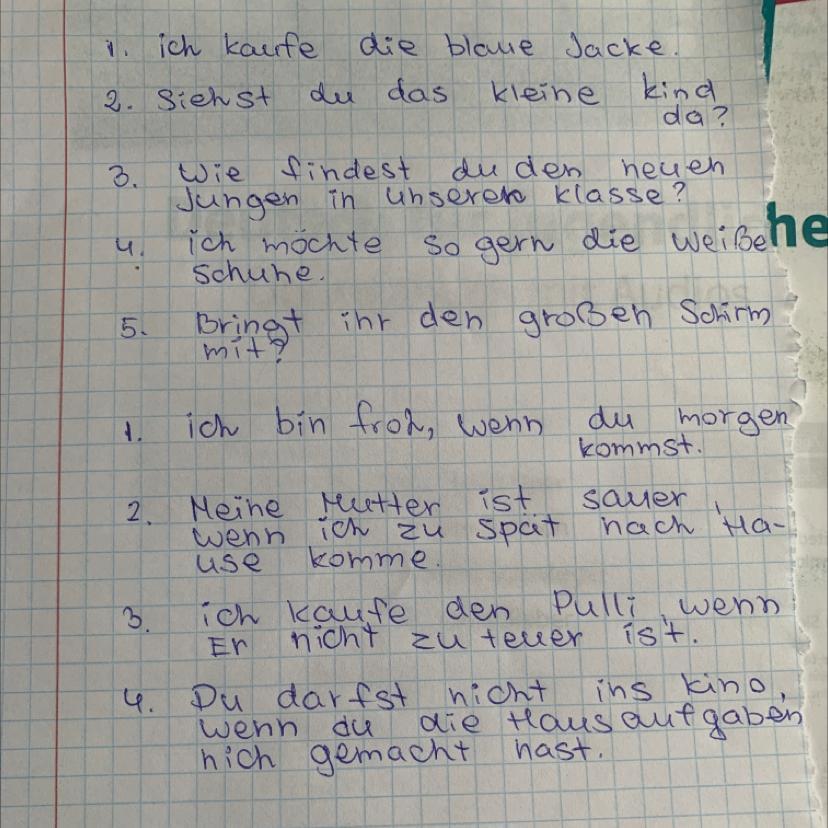 1. ich kaufe die blaue Jacke.
2. Siehst du das kleine kind
da?
3. Wie findest du den neuen
Jungen in unseren klasse?
4. ich möchte so gern die weiße
Schuhe.
he
5. Bringt ihr den großen Schirm
mit?
1. ich bin froh, wenn du morgen
kommst.
2. Meine Mutter ist sauer,
wenn ich zu spät nach Ha-
use komme.
3. ich kaufe den Pulli, wenn
Er nicht zu teuer ist.
4. Du darfst nicht ins kino,
wenn du die Hausaufgaben
nich gemacht hast.